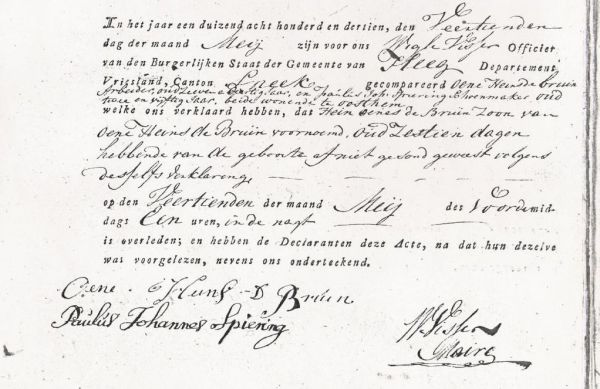 In het jaar een duizend acht honderd en dertien, den Veertienden
dag der maand Meij zijn voor ons Wigle Visser Officier
van den Burgerlijken Staat der Gemeente van Heeg Departement
Vriesland, Canton Sneek gecompareerd Oene Heins de bruin
Arbeider, oud en Paulus Joh. Spiering Schoenmaker oud
twee en vijftig Jaar, beide wonende te oosthem
welke ons verklaard hebben, dat Hein oenes de Bruin Zoon van
oene Heins de Bruin voornoemd, Oud Zestien dagen
hebbende van de geboorte af niet gesond geweest volgens
desselfs verklaring
op den Veertienden der maand Meij des Voordemid-
dags Een uren, in de nagt
is overleden; en hebben de Declaranten deze Acte, na dat hun dezelve
was voorgelezen, nevens ons onderteekend.
Oene Heins D Bruin
Paulus Johannes Spiering
W Visser
Maire